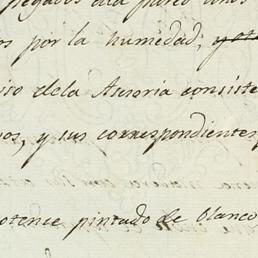 pegados ala pared
os por la humedad;
iso dela Asesoria consiste
os, y sus correspondientes
otence pintado de blanco